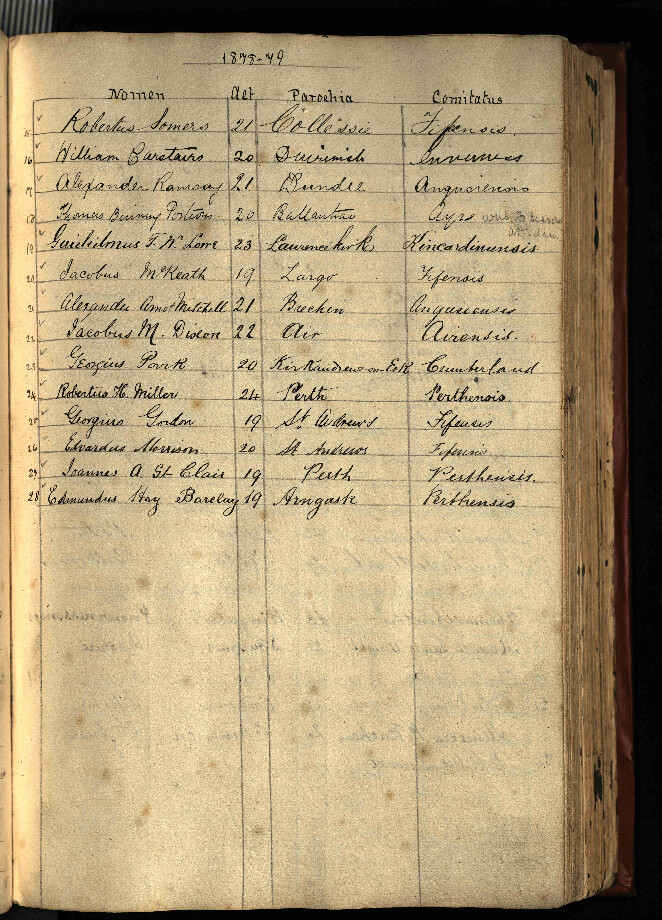 1878-79
Nomen Aet Parochia Comitatus
15 Robertus Somers 21 Collessie Fifensis.
16 William Carstairs 20 Duirinish Inverness
17 Alexander Ramsay 21 Dundee Angusiensis
18 Thomas Binning 20 Ballantrae Ayrs
19 Guilielmus F. W. Lowe 23 Laurencekirk Kincardinensis
20 Jacobus McKeath 19 Largo Fifensis
21 Alexander Amot Mitchell 21 Brechin Angusiensis
22 Jacobus M. Dixon 22 Air Airensis.
23 Georgius 20 Kirkandrews-on-Esk Cumberland
24 Robertus H. Miller 24 Perth Perthensis
25 Georgius Gordon 19 St Andrews Fifensis
26 Edvardus Morrison 20 St Andrews Fifensis
27 Joannes A. St Clair 19 Perth Perthensis.
28 Edmundus Hay Barclay 19 Arngask Perthensis